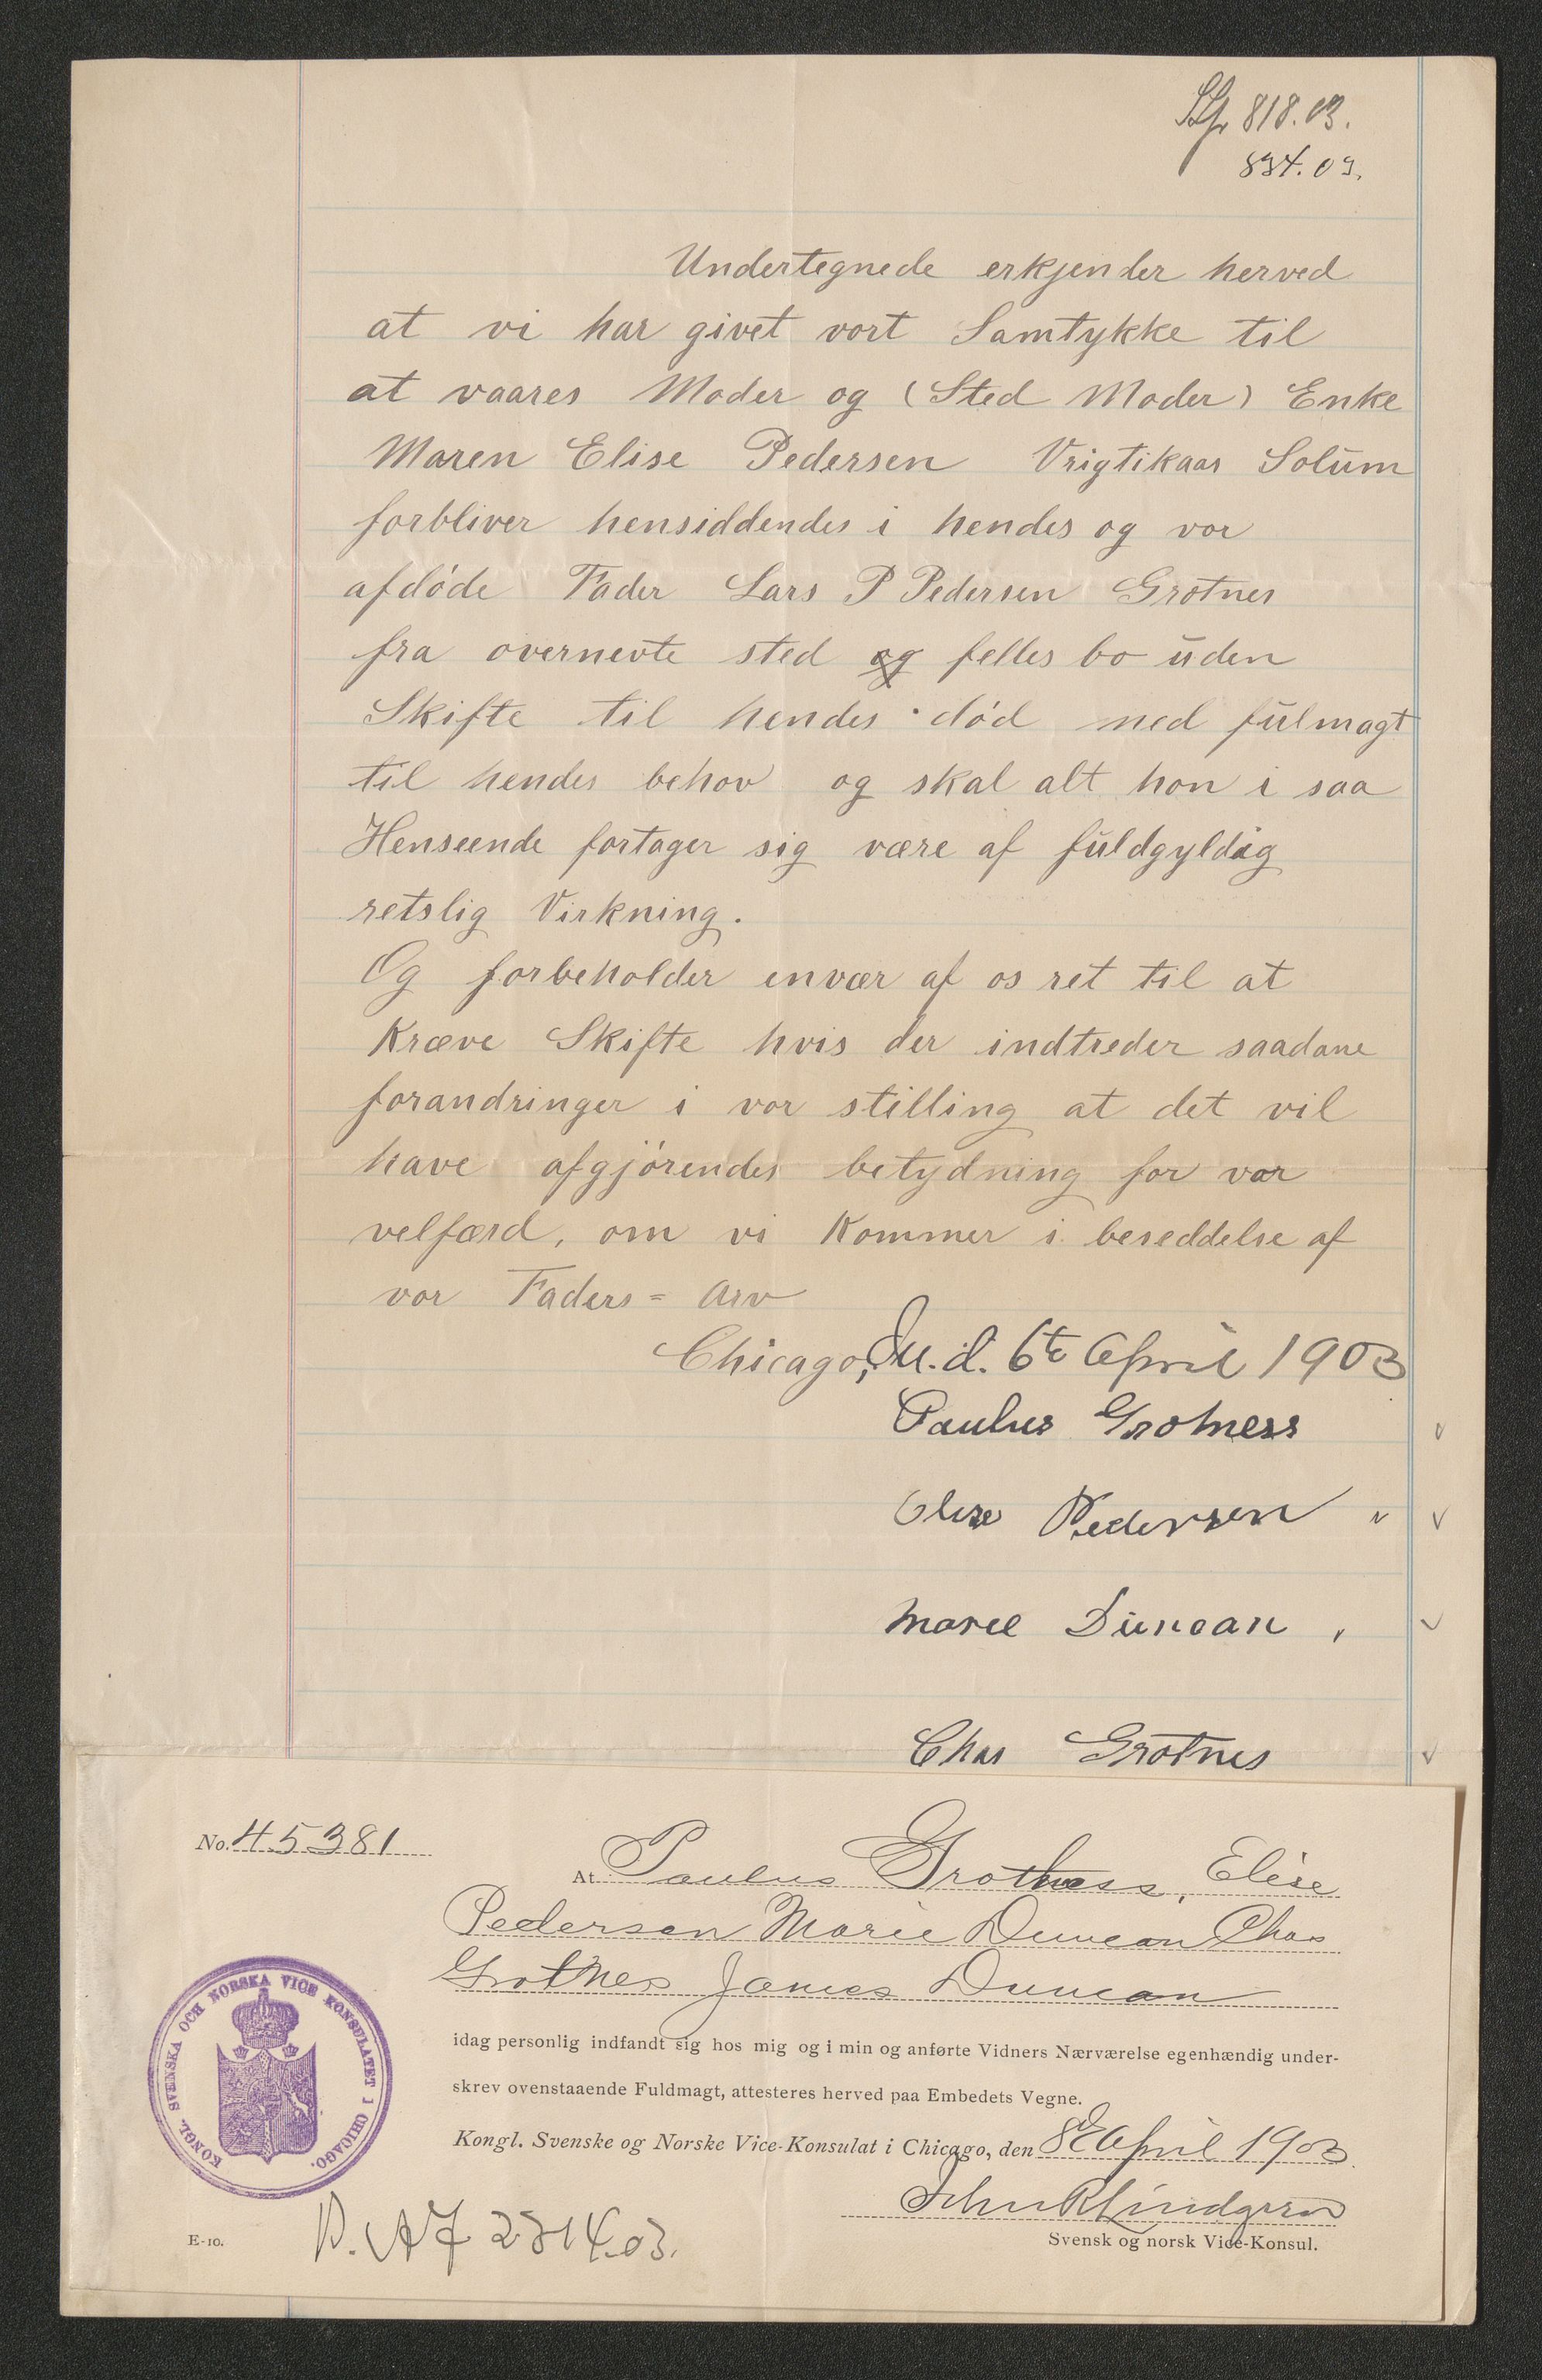 818.03.
834.03.
Undertegnede erkjender herved
at vi har givet vort Samtykke til
at vaares Moder og (Sted Moder) Enke
Maren Elise Pedersen Vrigtikaas Solum
forbliver hensiddendes i hendes og vor
afdöde Fader Lars P Pedersen Grotnes
fra overnevte sted og felles bo uden
Skifte til hendes död med fulmagt
til hendes behov og skal alt hon i saa
Henseende fortager sig være af fuldgyldig
retslig Virkning.
Og forbeholder envær af os ret til at
Kræve Skifte hvis der indtreder saadane
forandringer i vor stilling at det vil
have afgjörendes betydning for vor
velfærd, om vi Kommer i beseddelse af
vor Faders = Arv
Chicago, 6te April 1903
Paulus Grotness
Elise Pedersen
Marie Duncan
Chas Grotnes
No. 45381
At Paulus Grotness, Elise
Pedersen Marie Duncan Chas
Grotnes James Duncan
idag personlig indfandt sig hos mig og i min og anførte Vidners Nærværelse egenhændig under-
skrev ovenstaaende Fuldmagt, attesteres herved paa Embedets Vegne.
Kongl. Svenske og Norske Vice-Konsulat i Chicago, den 8de April 1903
John R Lindgren
Svensk og norsk Vice-Konsul.
KONGL. SVENSKA OCH NORSKA VICE KONSULATET I CHICAGO.
E-10.